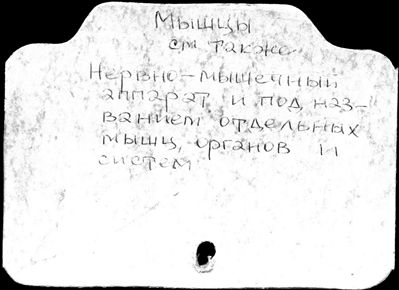 Мышцы
см. также
Нервно-мышечный
аппарат и под наз-
ванием отдельных
мышц, органов и
систем